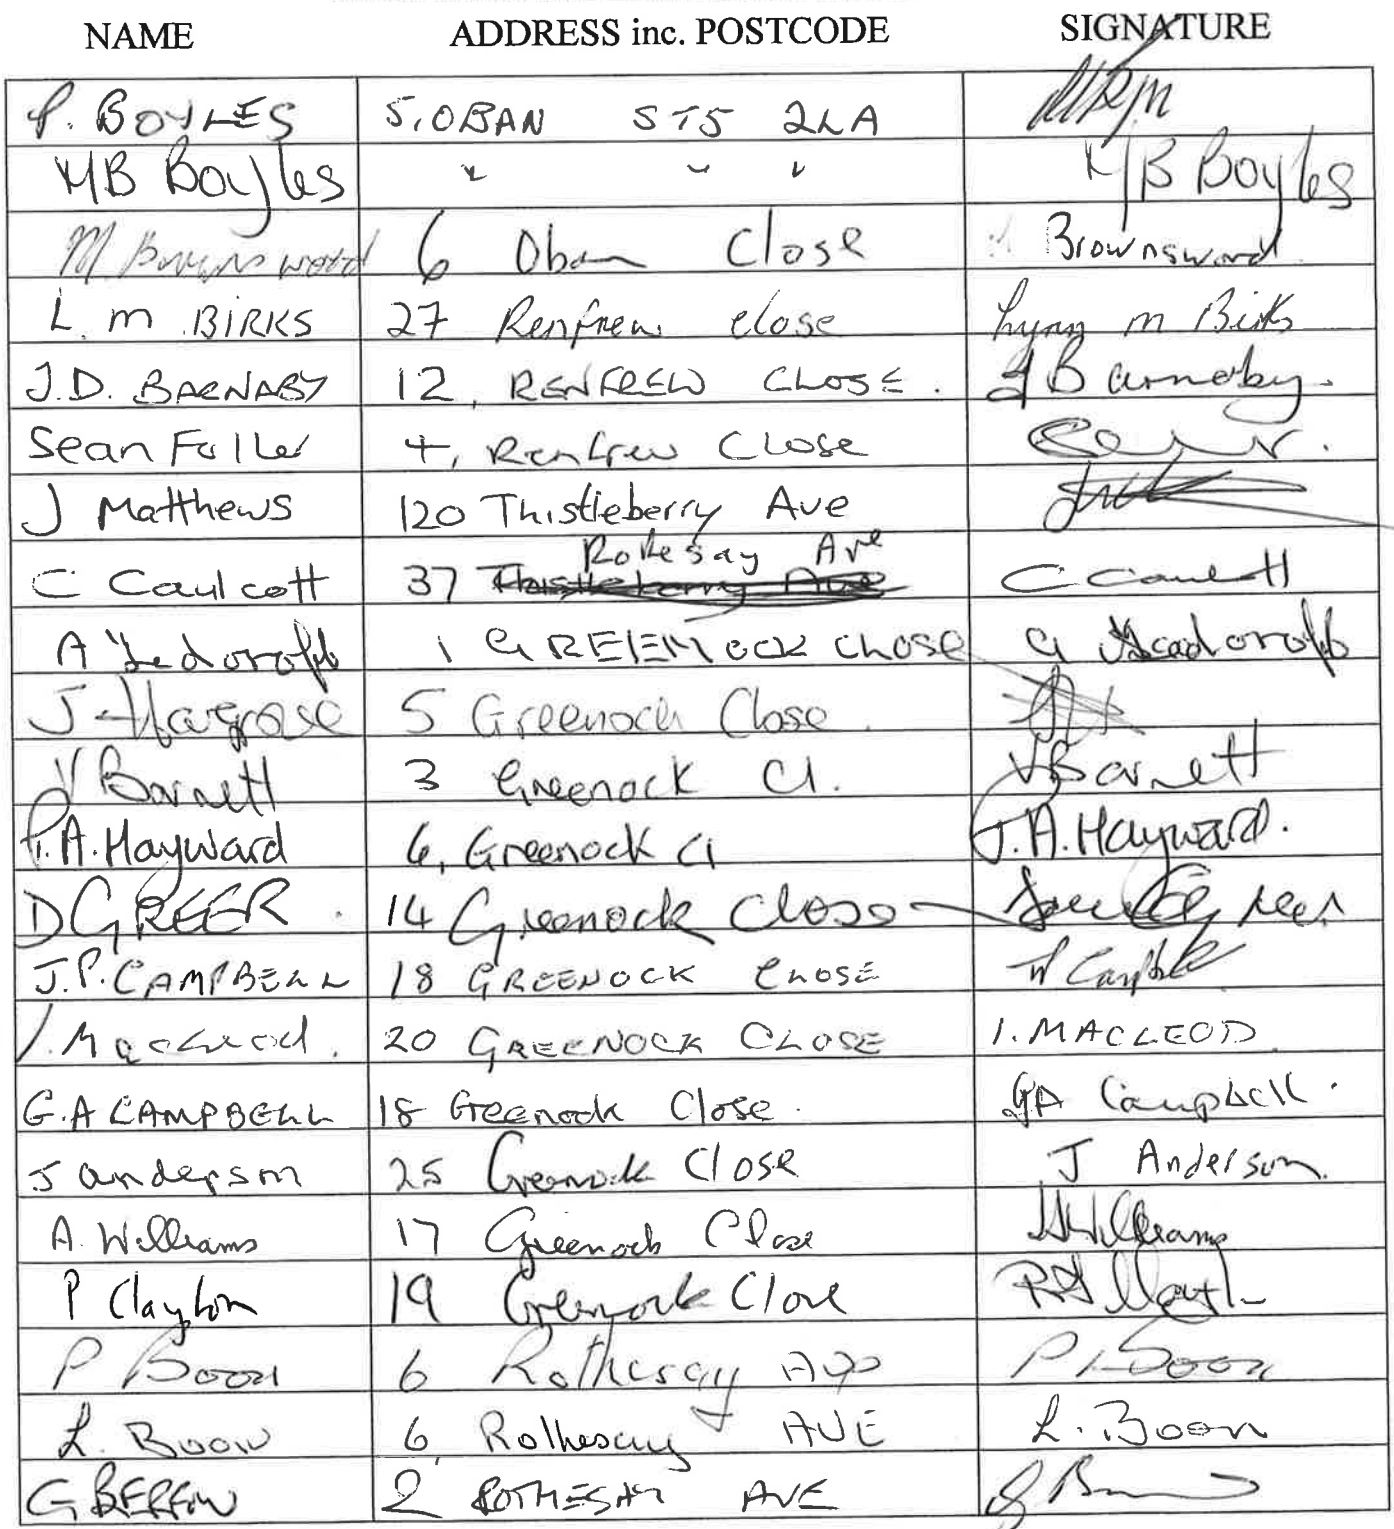 NAME ADDRESS inc. POSTCODE SIGNATURE
P. BOYLES 5, OBAN ST5 2LA
MB Boyles " " " MB Boyles
M. Brownsword 6 Oban Close Brownsword
L. M. BIRKS 27 Renfrew close Lynn M Birks
J.D. BARNABY 12, RENFREW CLOSE. J Barnaby.
Sean Fuller 4, Renfrew Close
J Matthews 120 Thistleberry Ave
Rothesay Ave
C Caulcott 37 Thistleberry Ave C Caulcott
A 1 GREENOCK CLOSE
J Hargrove 5 Greenock Close.
V Barnett 3 Greenock Cl. V Barnett
A. Hayward 6, Greenock Cl A. Hayward.
D GREER. 14 Greenock Close Greer
J.P. CAMPBELL 18 GREENOCK CLOSE Campbell
I. MacLeod. 20 GREENOCK CLOSE I. MACLEOD.
G.A CAMPBELL 18 Greenock Close. GA Campbell.
J anderson 25 Greenock Close J Anderson.
A. Williams 17 Greenock Close A Williams
P Clayton 19 Greenock Close
P Boon 6 Rothesay Ave P Boon
L. Boon 6, Rothesay AVE L. Boon
G 2 ROTHESAY AVE